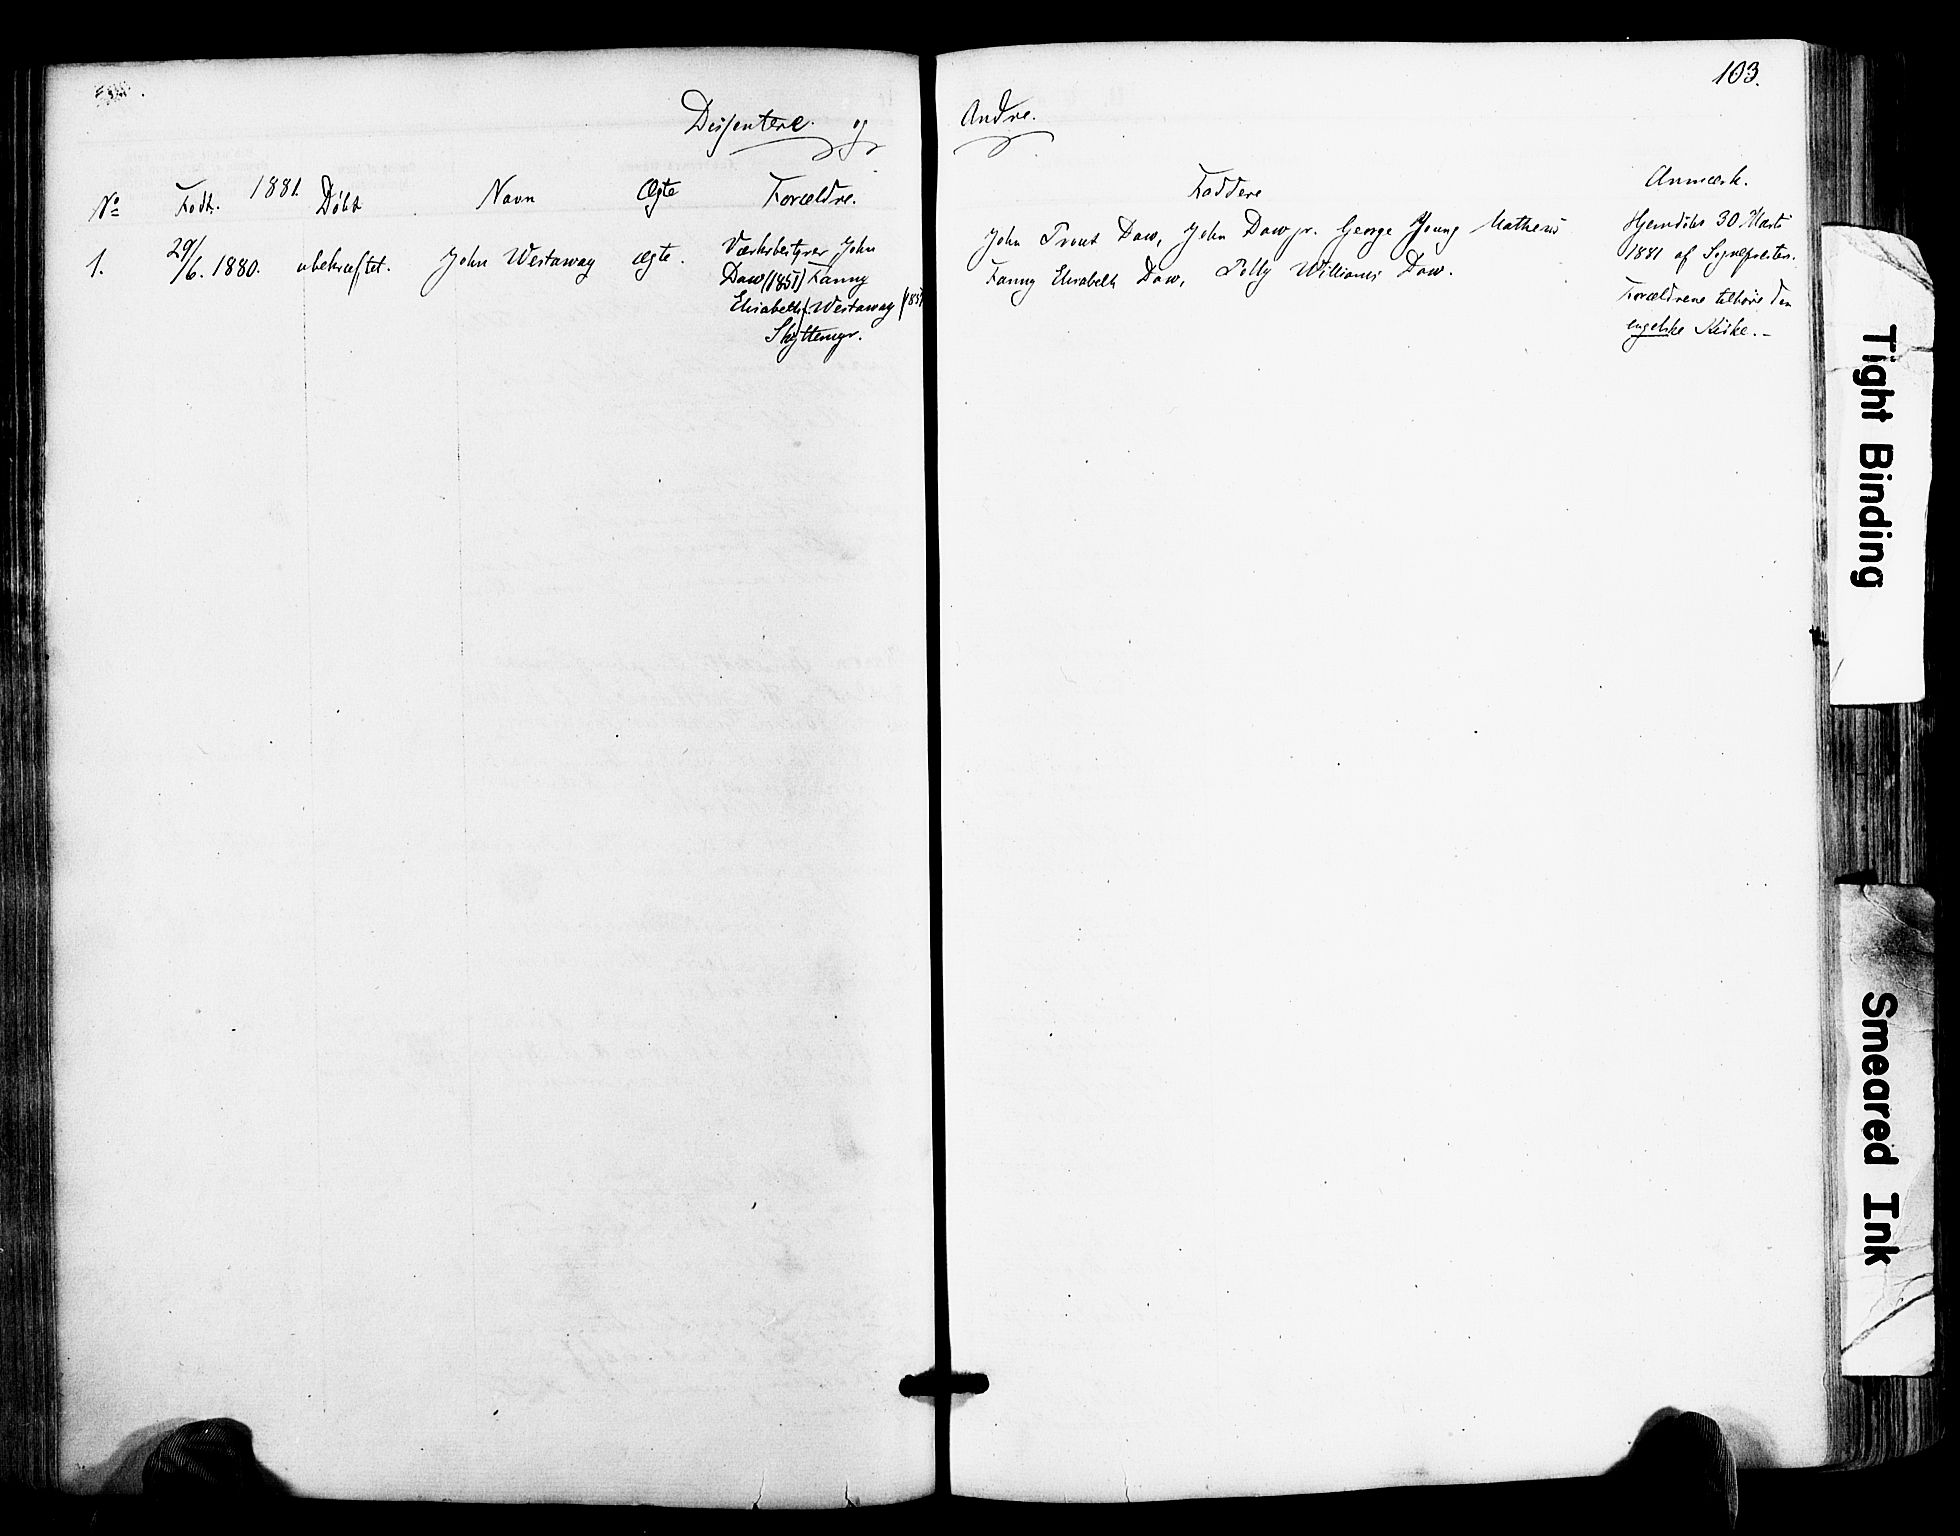 103.
Dissentere og Andre.
1881.
No Født. Døbt Navn Ægte Forældre. Faddere Anmærk.
1. 29/6. 1880. ubekræftet. John Westaway ægte. Værksbestyrer John
Daw (1851) Fanny
Elisabeth f. Westaway (185
Skyttemyr.
John Trout Daw, John Daw jr. George Young Mathews
Fanny Elisabeth Daw, Polly Williams Daw.
Hjemdøbt 30 Marts
1881 af Sognepresten.
Forældrene tilhøre den
engelske Kirke.-
Tight Binding
Smeared Ink